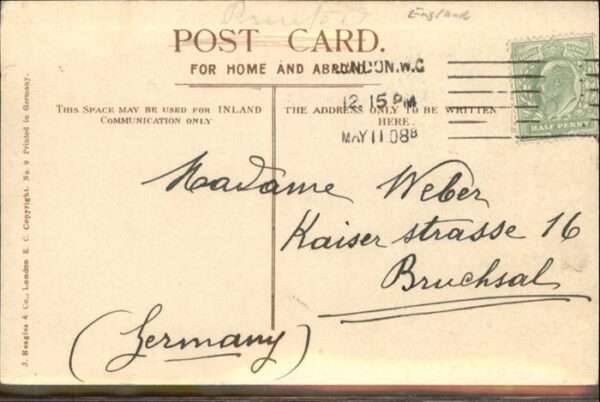 England
POST CARD.
FOR HOME AND ABROAD.
LONDON.W.C
12.15 PM
MAY 11 08
HALF PENNY
THIS SPACE MAY BE USED FOR INLAND
COMMUNICATION ONLY
THE ADDRESS ONLY TO BE WRITTEN
HERE.
Madame Weber
Kaiserstrasse 16
Bruchsal
(Germany)
J. Beagles & Co., London E. C. Copyright. No. 9 Printed in Germany.